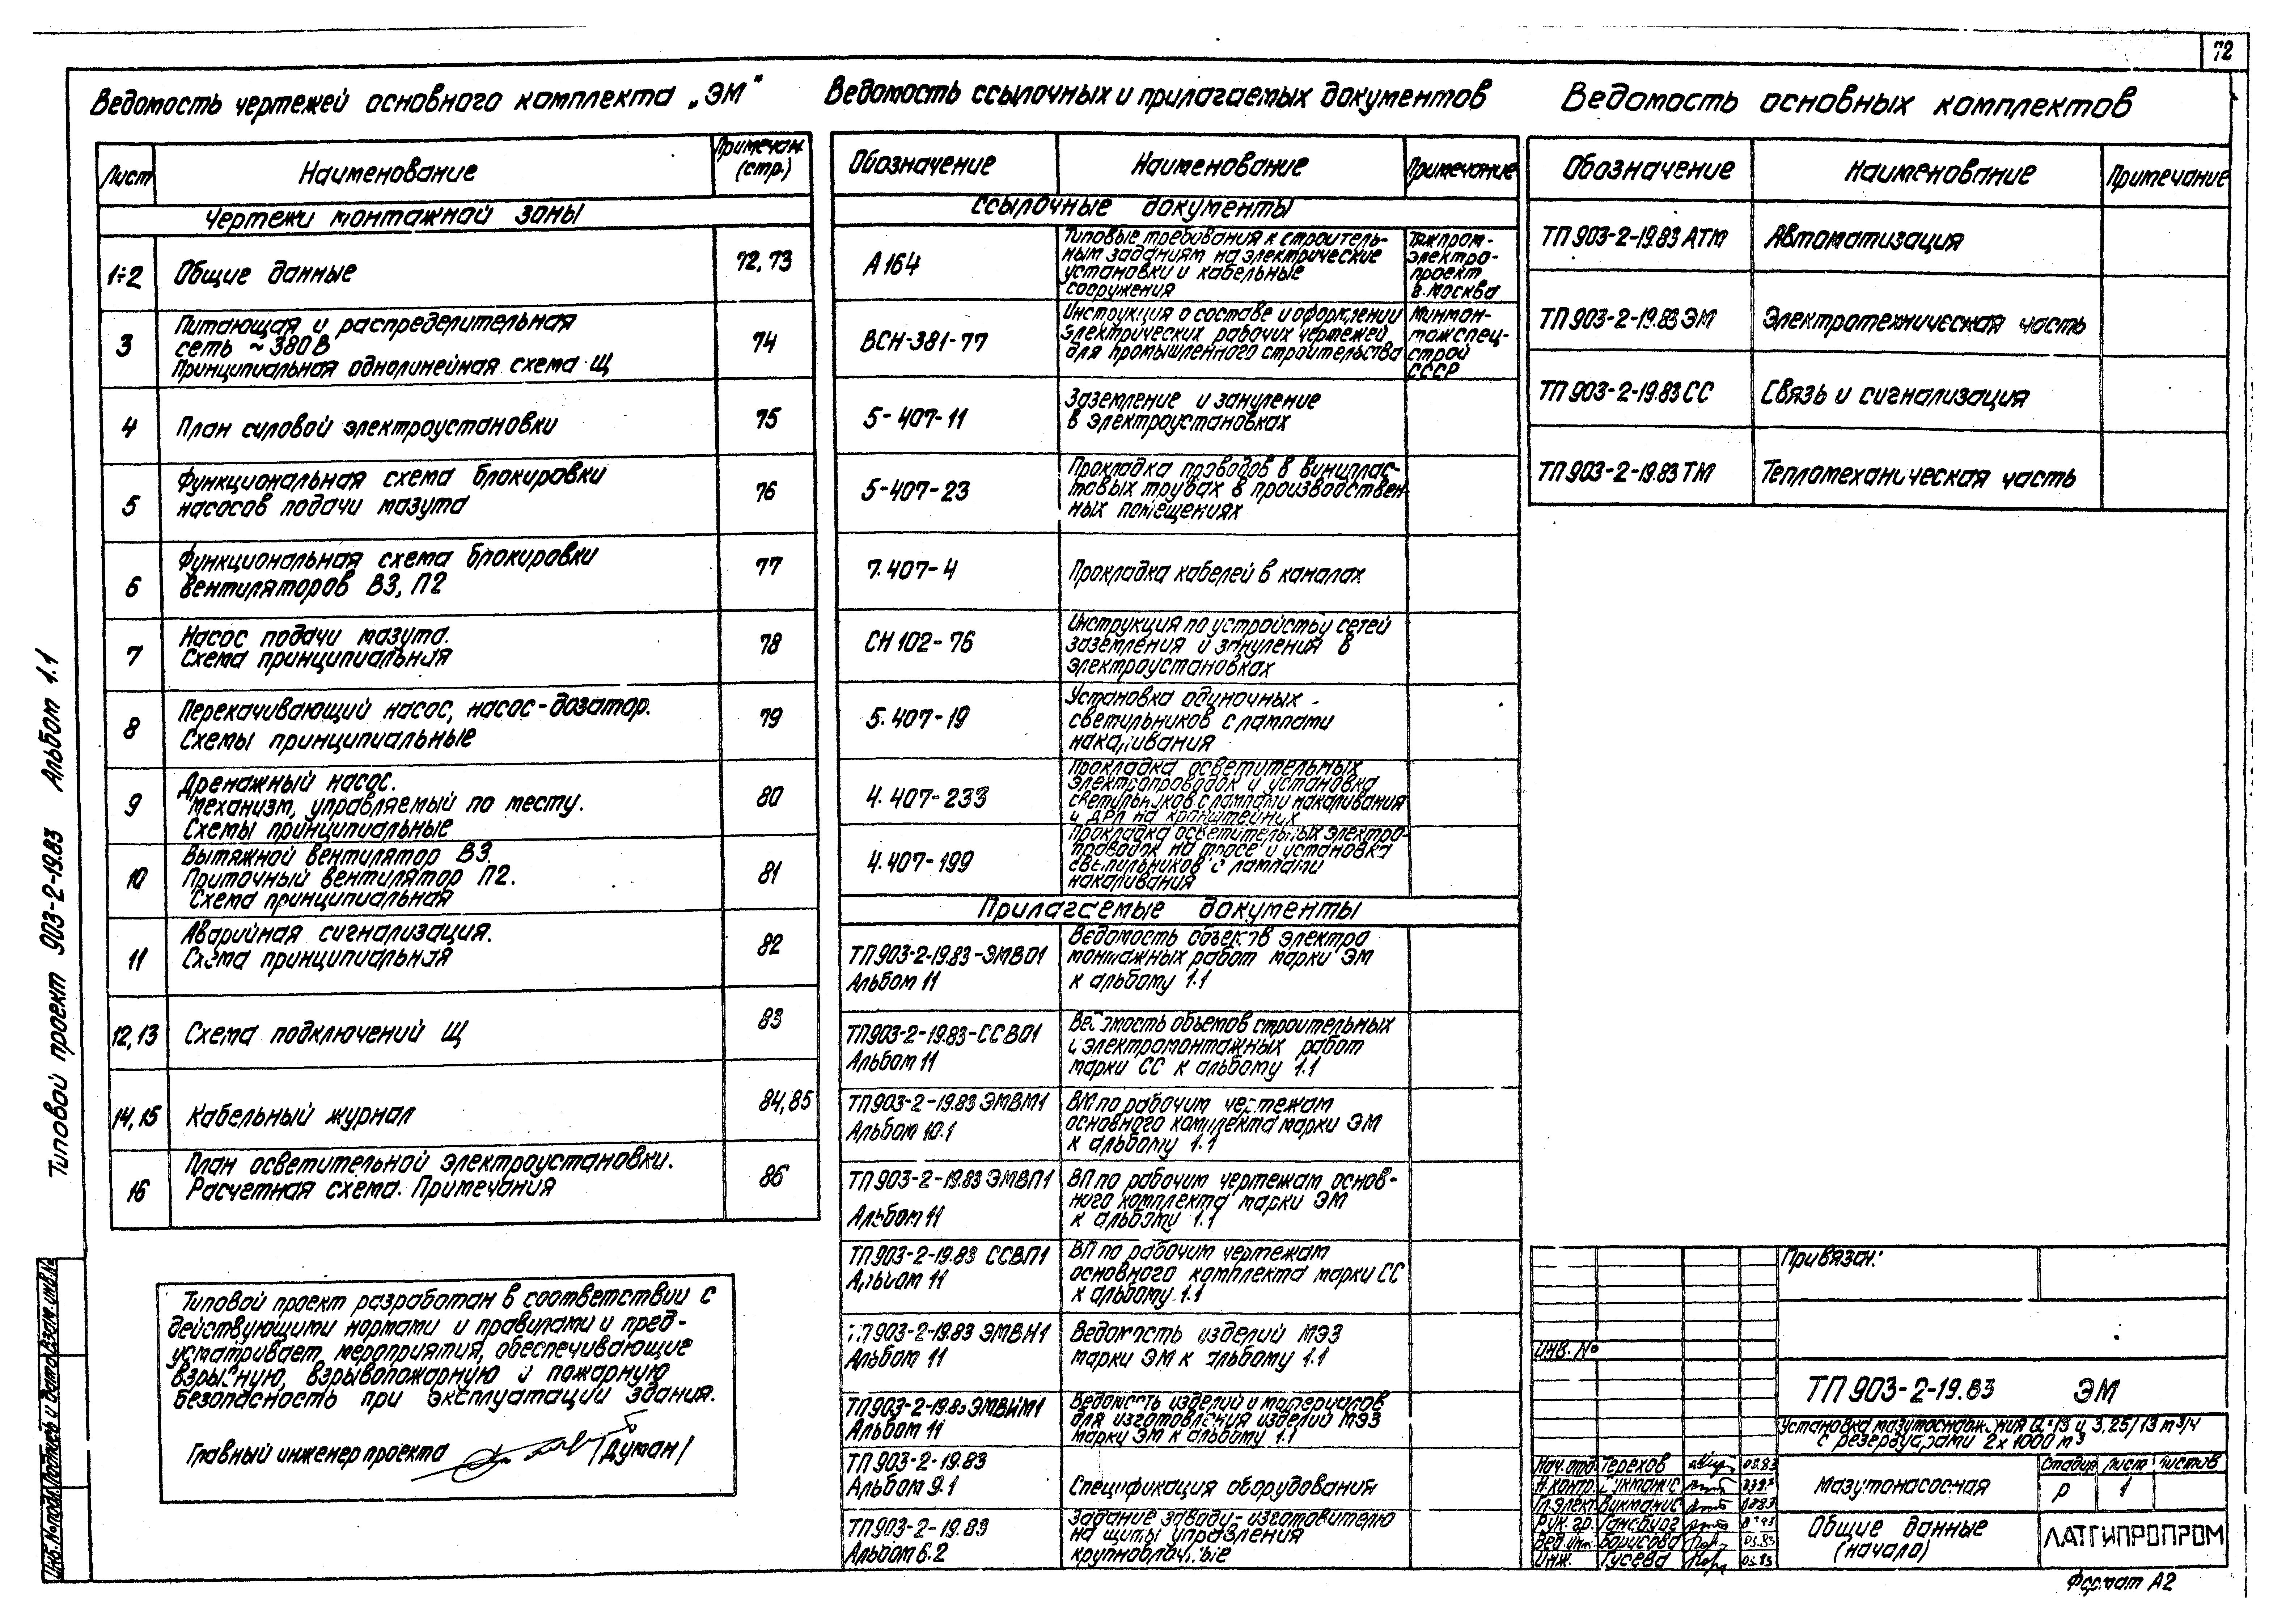 72
Ведомость чертежей основного комплекта „ЭМ"
Лист
Наименование
Примечан.
(стр.)
Чертежи монтажной зоны
1÷2
Общие данные
72, 73
3
Питающая и распределительная
сеть ~ 380В
Принципиальная однолинейная схема Щ
74
4
План силовой электроустановки
75
5
Функциональная схема блокировки
насосов подачи мазута
76
6
Функциональная схема блокировки
вентиляторов В3, П2
77
7
Насос подачи мазута.
Схема принципиальная
78
8
Перекачивающий насос, насос-дозатор.
Схемы принципиальные
79
9
Дренажный насос.
Механизм, управляемый по месту.
Схемы принципиальные
80
10
Вытяжной вентилятор В3.
Приточный вентилятор П2.
Схема принципиальная
81
11
Аварийная сигнализация.
Схема принципиальная
82
12, 13
Схема подключений Щ
83
14, 15
Кабельный журнал
84, 85
16
План осветительной электроустановки.
Расчетная схема. Примечания
86
Типовой проект разработан в соответствии с
действующими нормами и правилами и пред-
усматривает мероприятия, обеспечивающие
взрывную, взрывопожарную и пожарную
безопасность при эксплуатации здания.
Главный инженер проекта /Думан/
Ведомость ссылочных и прилагаемых документов
Обозначение
Наименование
Примечание
Ссылочные документы
А164
Типовые требования к строитель-
ным заданиям на электрические
установки и кабельные
сооружения
Тяжпром-
электро-
проект
г. Москва
ВСН-381-77
Инструкция о составе и оформлении
электрических рабочих чертежей
для промышленного строительства
Минмон-
тажспец-
строй
СССР
5-407-11
Заземление и зануление
в электроустановках
5-407-23
Прокладка проводов в винилплас-
товых трубах в производствен-
ных помещениях
7.407-4
Прокладка кабелей в каналах
СН 102-76
Инструкция по устройству сетей
заземления и зануления в
электроустановках
5.407-19
Установка одиночных
светильников с лампами
накаливания
4.407-233
Прокладка осветительных
электропроводок и установка
светильников с лампами накаливания
и ДРЛ на кронштейнах
4.407-199
Прокладка осветительных электро-
проводок на тросе и установка
светильников с лампами
накаливания
Прилагаемые документы
ТП 903-2-19.83-ЭМВО1
Альбом 11
Ведомость объемов электро
монтажных работ марки ЭМ
к альбому 1.1
ТП 903-2-19.83-ССВО1
Альбом 11
Ведомость объемов строительных
и электромонтажных работ
марки СС к альбому 1.1
ТП 903-2-19.83 ЭМВМ1
Альбом 10.1
ВМ по рабочим чертежам
основного комплекта марки ЭМ
к альбому 1.1
ТП 903-2-19.83 ЭМВП1
Альбом 11
ВП по рабочим чертежам основ-
ного комплекта марки ЭМ
к альбому 1.1
ТП 903-2-19.83 ССВП1
Альбом 11
ВП по рабочим чертежам
основного комплекта марки СС
к альбому 1.1
ТП 903-2-19.83 ЭМВН1
Альбом 11
Ведомость изделий МЭЗ
марки ЭМ к альбому 1.1
ТП 903-2-19.83 ЭМВИМ1
Альбом 11
Ведомость изделий и материалов
для изготовления изделий МЭЗ
марки ЭМ к альбому 1.1
ТП 903-2-19.83
Альбом 9.1
Спецификация оборудования
ТП 903-2-19.83
Альбом 6.2
Задание заводу-изготовителю
на щиты управления
крупноблочные
Ведомость основных комплектов
Обозначение
Наименование
Примечание
ТП 903-2-19.83 АТМ
Автоматизация
ТП 903-2-19.83 ЭМ
Электротехническая часть
ТП 903-2-19.83 СС
Связь и сигнализация
ТП 903-2-19.83 ТМ
Тепломеханическая часть
Привязан:
Инв. №
ТП 903-2-19.83 ЭМ
Установка мазутоснабжения Q=13 и 3,25/13 м³/ч
с резервуарами 2х1000 м³
Нач. отд. Терехов 03.83
Н. контр.
Гл. элект. Викманис
Рук. гр. Гансбург
Вед. инж. Борисова 03.83
Инж. Гусева 03.83
Мазутонасосная
Стадия
Лист
Листов
Р
1
Общие данные
(начало)
ЛАТГИПРОПРОМ
Формат А2
Типовой проект 903-2-19.83 Альбом 1.1
Инв. № подл. Подпись и дата Взам. инв. №